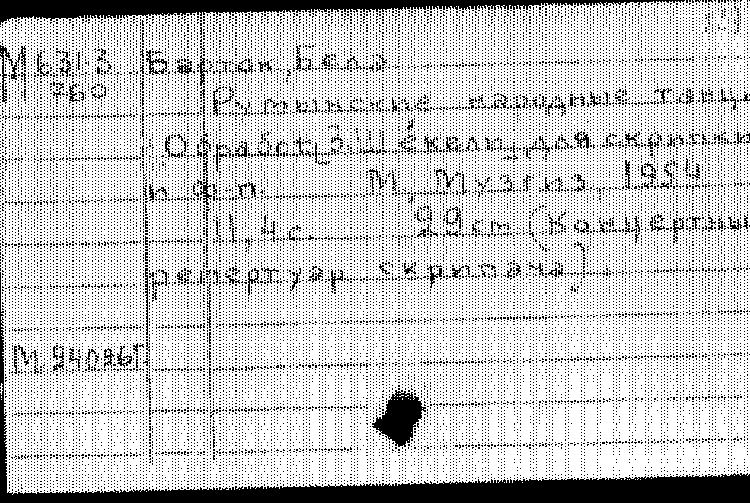 М 631.3 Барток, Бела
760
Румынские народные танцы
Обработ. З. Секели, для скрипки
и ф.-п. М., Музгиз, 1954
11, 4 с. 29 cm (Концертный
репертуар скрипача).
М 24036Г